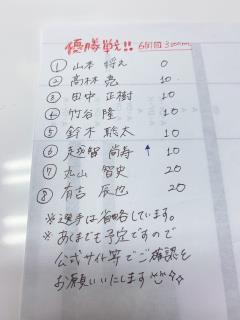 優勝戦!! 6周回 3100m
① 山本 将之 0
② 高林 亮 10
③ 田中 正樹 10
④ 竹谷 隆 10
⑤ 鈴木 聡太 10
⑥ 越智 尚寿 ↑ 10
⑦ 丸山 智史 20
⑧ 有吉 辰也 20
※選手は省略しています。
※あくまでも予定ですので
公式サイト等でご確認を
お願いいたします